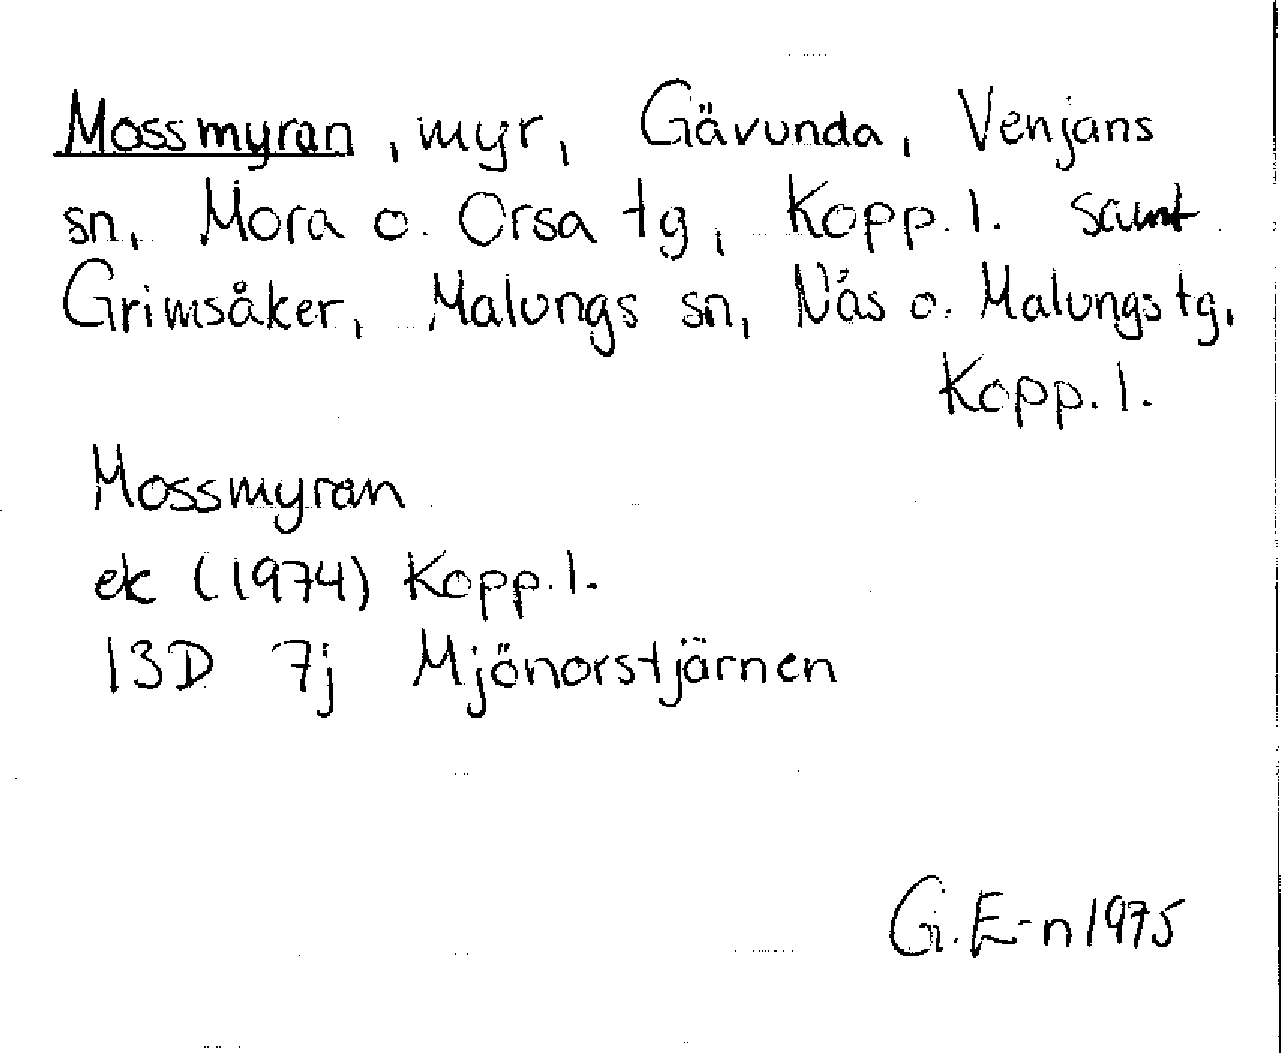 Mossmyran, myr, Gävunda, Venjans
sn, Mora o. Orsa tg, Kopp. l. samt
Grimsåker, Malungs sn, Nås o. Malungs tg,
Kopp. l.
Mossmyran
ek (1974) Kopp. l.
13D 7j Mjönorstjärnen
G. E-n 1975